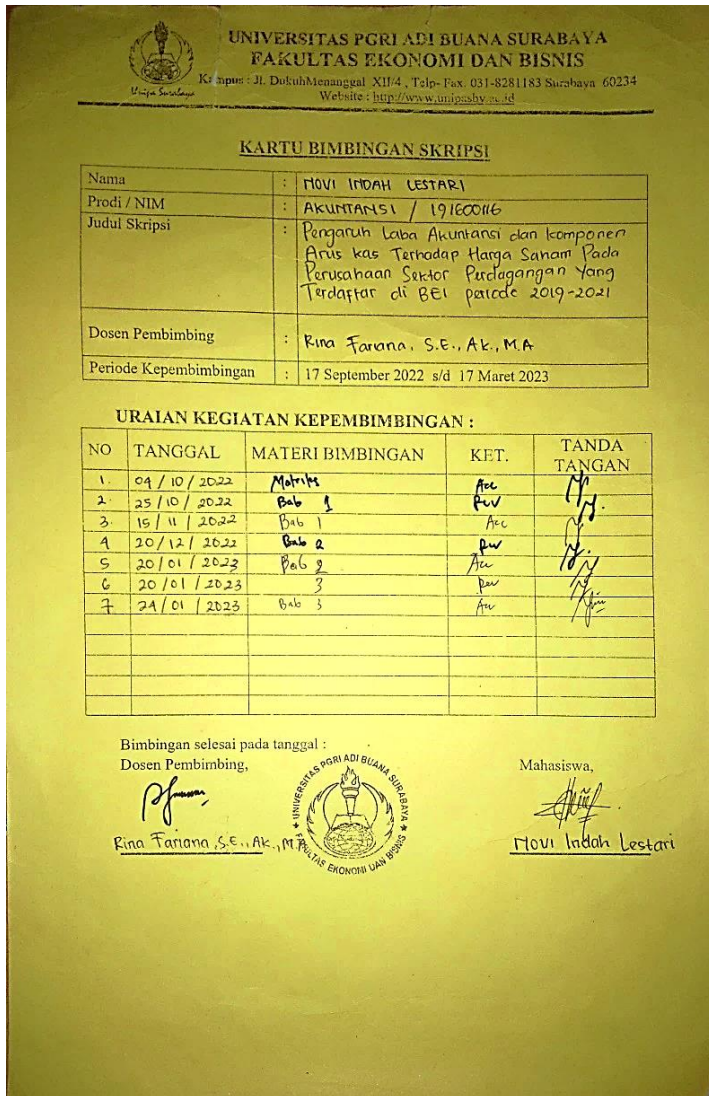 UNIVERSITAS PGRI ADI BUANA SURABAYA
FAKULTAS EKONOMI DAN BISNIS
Kampus : Jl. DukuhMenanggal XII/4 , Telp- Fax. 031-8281183 Surabaya 60234
Website : http://www.unipasby.ac.id
Unipa Surabaya
KARTU BIMBINGAN SKRIPSI
Nama : NOVI INDAH LESTARI
Prodi / NIM : AKUNTANSI / 191600116
Judul Skripsi : Pengaruh Laba Akuntansi dan Komponen
Arus kas Terhadap Harga Saham Pada
Perusahaan Sektor Perdagangan Yang
Terdaftar di BEI periode 2019-2021
Dosen Pembimbing : Rina Fariana, S.E., Ak., M.A
Periode Kepembimbingan : 17 September 2022 s/d 17 Maret 2023
URAIAN KEGIATAN KEPEMBIMBINGAN :
NO TANGGAL MATERI BIMBINGAN KET. TANDA TANGAN
1. 04 / 10 / 2022 Matriks Acc
2. 25 / 10 / 2022 Bab 1 Rev
3. 15 / 11 / 2022 Bab 1 Acc
4 20 / 12 / 2022 Bab 2 Rev
5 20 / 01 / 2023 Bab 2 Acc
6 20 / 01 / 2023 3 Rev
7 24 / 01 / 2023 Bab 3 Acc
Bimbingan selesai pada tanggal :
Dosen Pembimbing, Mahasiswa,
UNIVERSITAS PGRI ADI BUANA SURABAYA
FAKULTAS EKONOMI DAN BISNIS
Rina Fariana, S.E., Ak., M.A Novi Indah Lestari